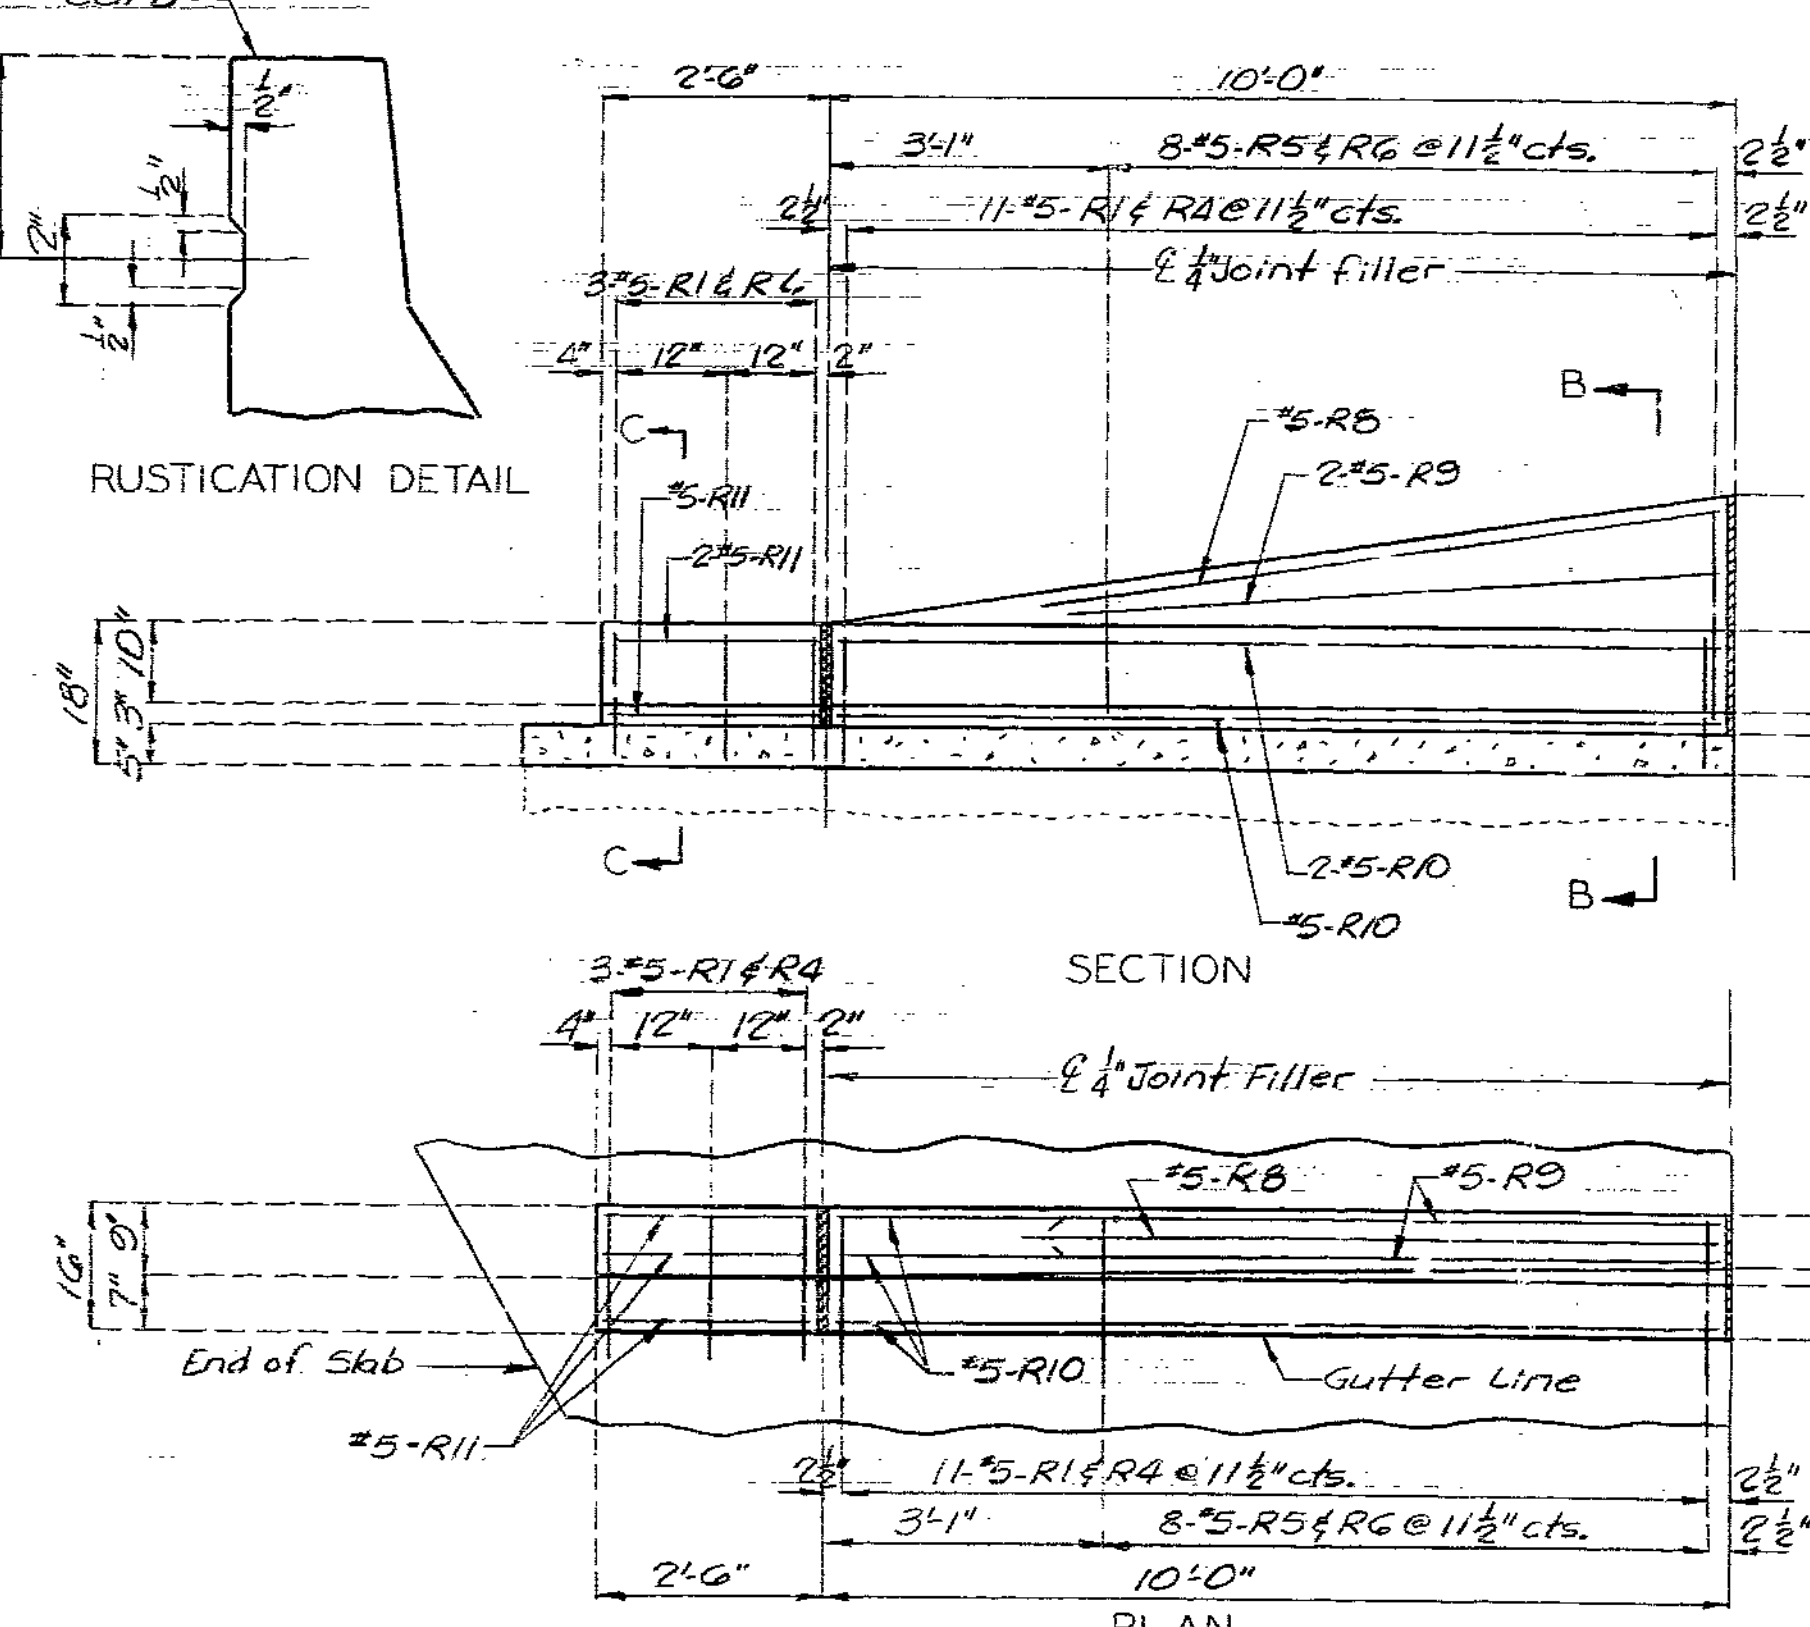 1/2"
1/2"
2"
1/2"
RUSTICATION DETAIL
2'-6" 10'-0"
3'-1" 8-#5-R5 & R6 @ 11 1/2" cts. 2 1/2"
2 1/2" 11-#5-R1 & R4 @ 11 1/2" cts. 2 1/2"
℄ 1/4" Joint filler
3-#5-R1 &
4" 12" 12" 2"
B
C
#5-R8
2-#5-R9
#5-R11
2-#5-R11
18"
10"
3"
5"
C
2-#5-R10
B
#5-R10
SECTION
3-#5-R1 & R4
4" 12" 12" 2"
℄ 1/4" Joint Filler
#5-R8 #5-R9
16"
9"
7"
End of Slab
#5-R10
Gutter Line
#5-R11
2 1/2" 11-#5-R1 & R4 @ 11 1/2" cts. 2 1/2"
3'-1" 8-#5-R5 & R6 @ 11 1/2" cts. 2 1/2"
2'-6" 10'-0"
PLAN